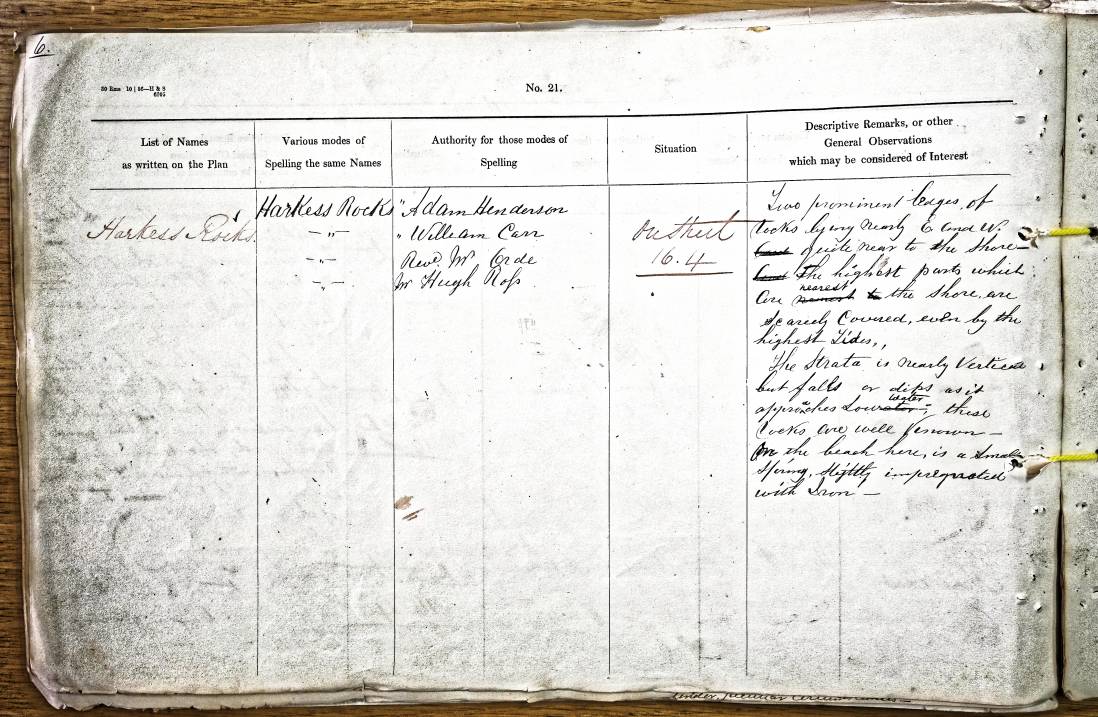 6.
No. 21.
List of Names
as written on the Plan
Various modes of
Spelling the same Names
Authority for those modes of
Spelling
Situation
Descriptive Remarks, or other
General Observations
which may be considered of Interest
Harkess Rocks.
Harkess Rocks
—"—
—"—
—"—
"Adam Henderson
" William Carr
Revd. Mr. Orde
Mr Hugh Ross
On Sheet
16.4
Two prominent ledges, of
rocks lying nearly E and W.
quite near to the shore—
the highest parts which
are nearest the shore, are
scarcely Covered, even by the
highest Tides,,
The Strata is nearly Vertical
but falls or dips as it
approaches Low water; these
rocks are well known—
On the beach here, is a small
Spring, slightly impregnated
with Iron —